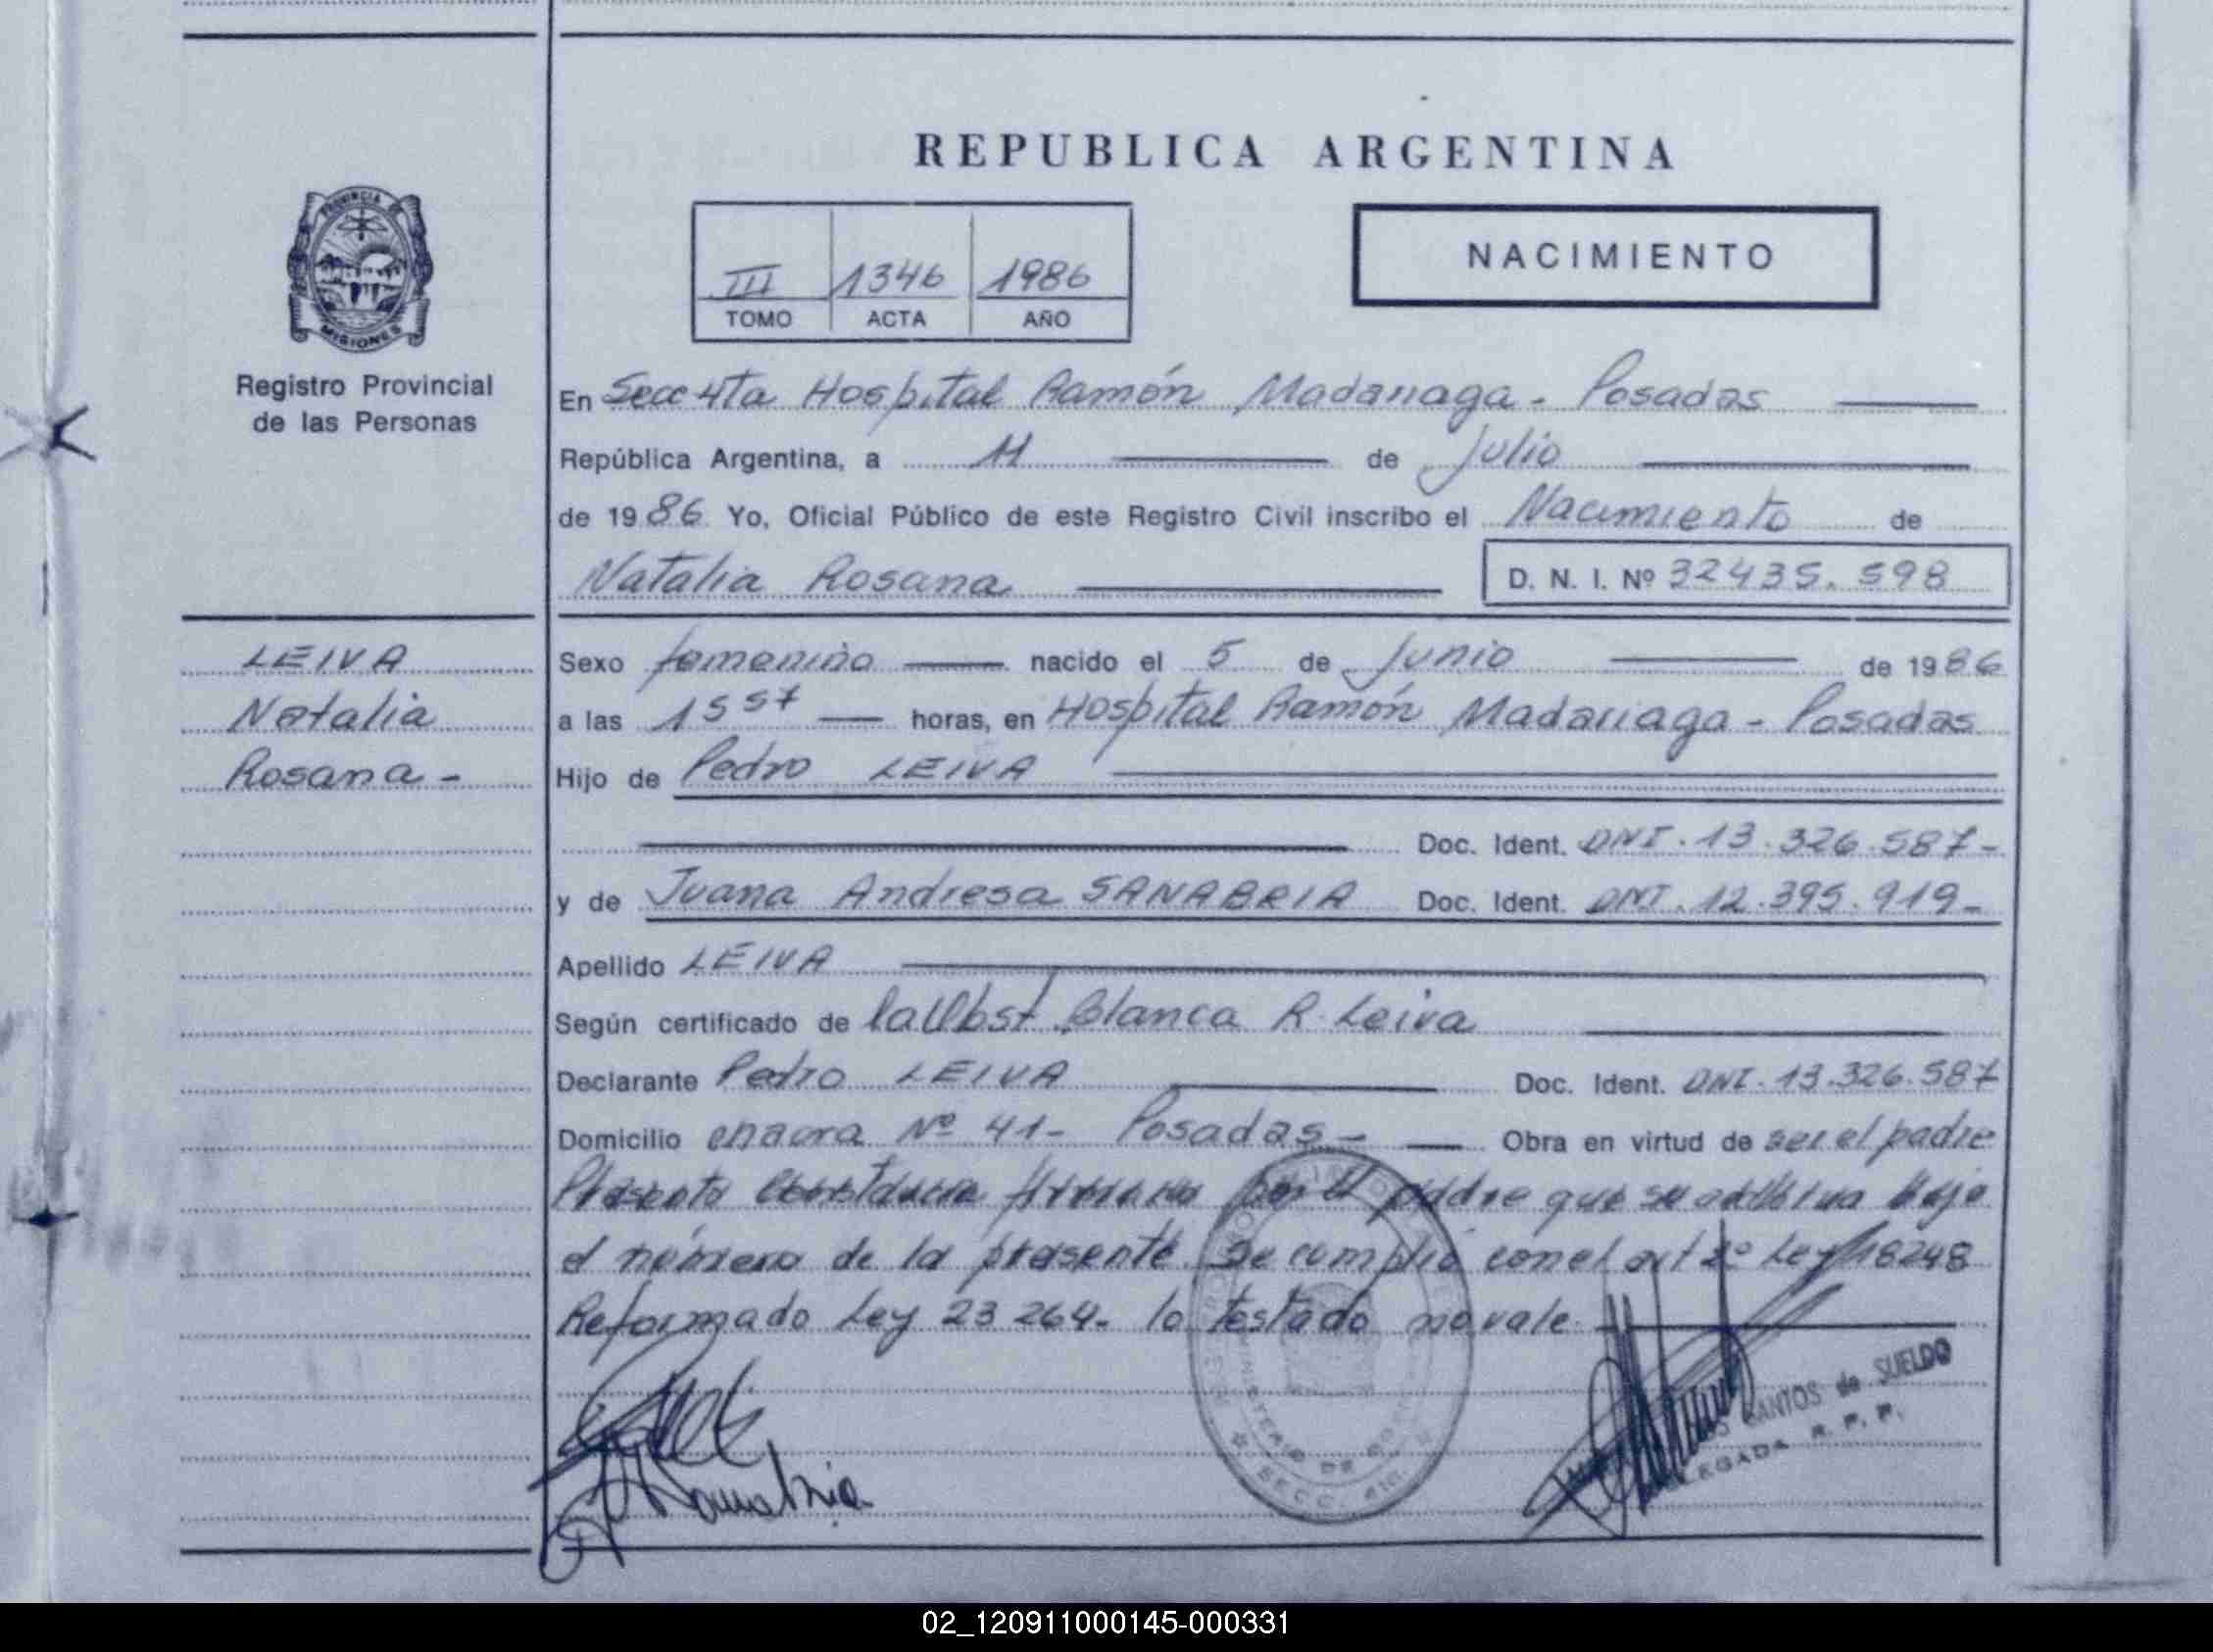 REPUBLICA ARGENTINA
PROVINCIA DE
MISIONES
Registro Provincial
de las Personas
NACIMIENTO
III 1346 1986
TOMO ACTA AÑO
En Secc 4ta Hospital Ramón Madariaga - Posadas
República Argentina, a 11 de Julio
de 1986 Yo, Oficial Público de este Registro Civil inscribo el Nacimiento de
Natalia Rosana D. N. I. Nº 32435.598
LEIVA
Natalia
Rosana -
Sexo femenino nacido el 5 de Junio de 1986
a las 15 57 horas, en Hospital Ramón Madariaga - Posadas
Hijo de Pedro LEIVA
Doc. Ident. DNI. 13.326.587-
y de Juana Andresa SANABRIA Doc. Ident. DNI. 12.395.919-
Apellido LEIVA
Según certificado de la Obst Blanca R. Leiva
Declarante Pedro LEIVA Doc. Ident. DNI. 13.326.587
Domicilio chacra Nº 41- Posadas - Obra en virtud de ser el padre
Presento constancia por el padre que se archiva bajo
el número de la presente. Se cumplió con el art 2º Ley 18248
Reformado Ley 23 264. lo testado no vale
SANTOS de SUELDO
DELEGADA R. P. P.
MINISTERIO DE
SECC. 4ta.
Sanabria
02_120911000145-000331